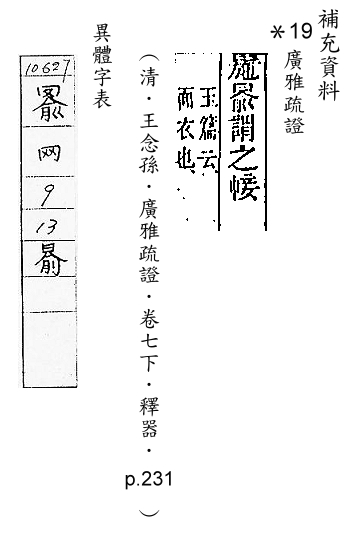 補充資料
*19 廣雅疏證
謂之帹
玉篇云
面衣也
（清．王念孫．廣雅疏證．卷七下．釋器．p.231）
異體字表
10627
网
9
13